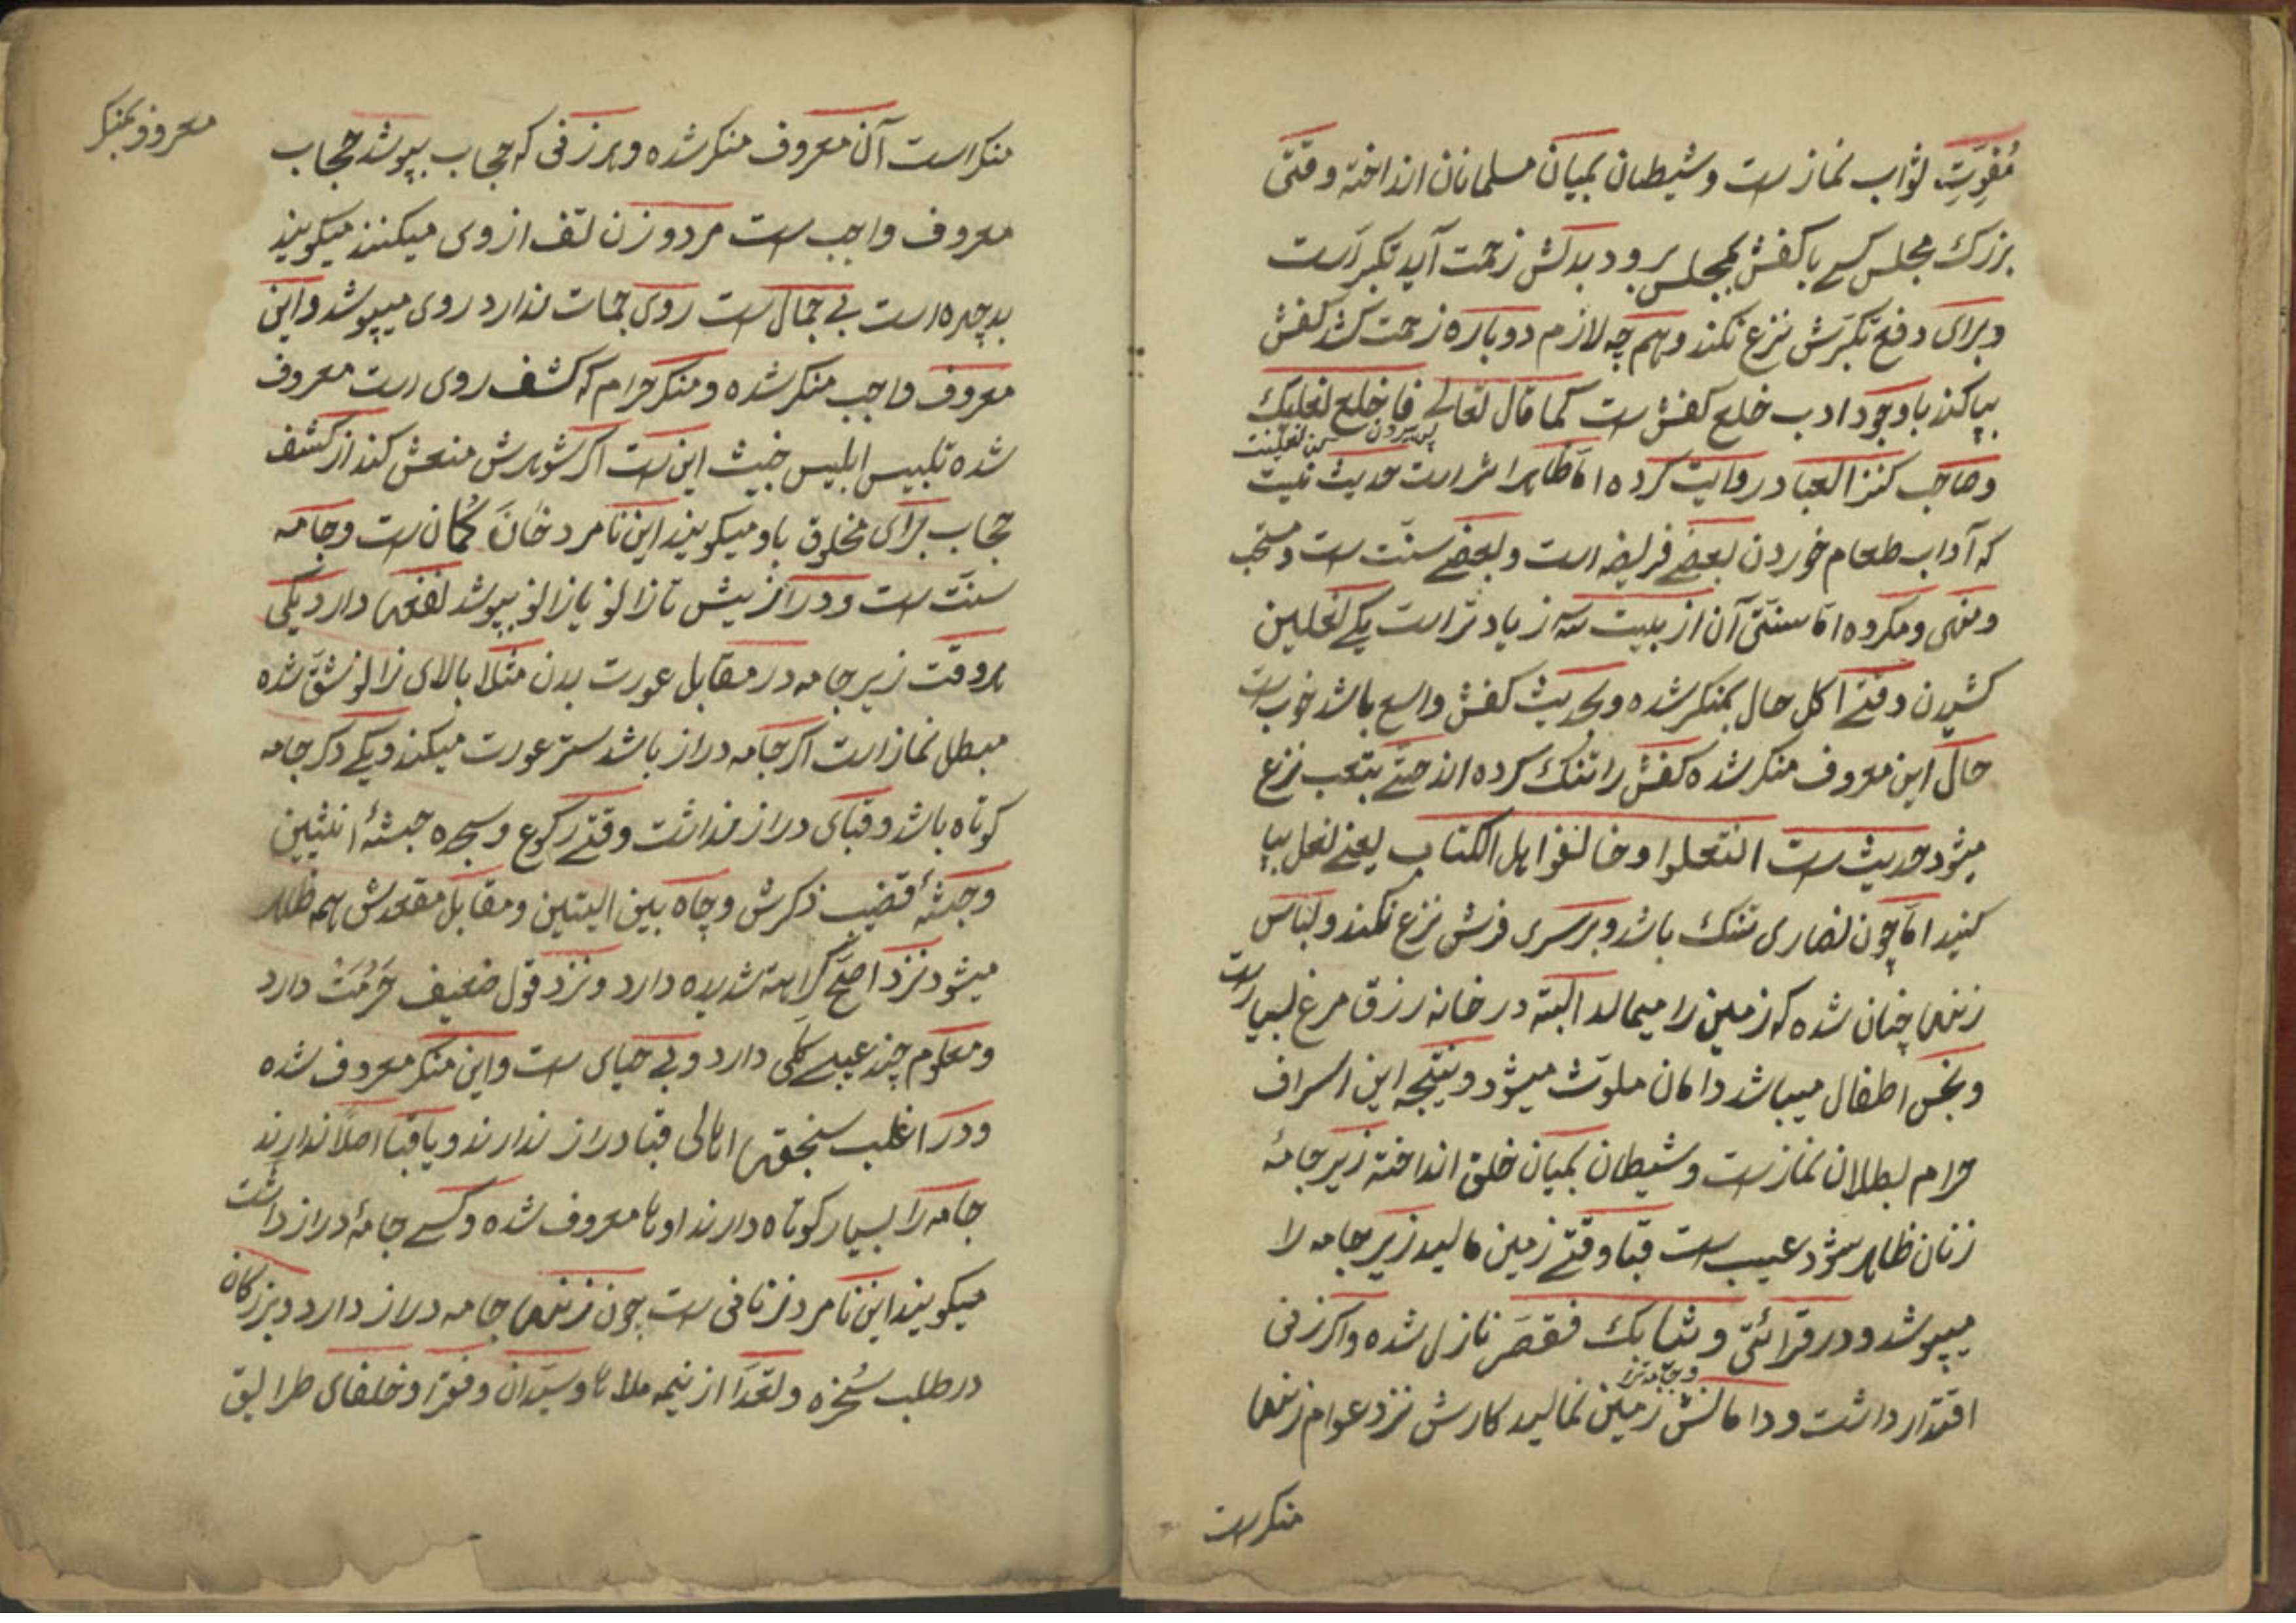 مُفوِّتِ ثواب نمازست و شیطان بمیان مسلمانان انداخته وقتی
بزرك مجلس کسے با کفش بمجلس برود بدلش زحمت آید تکبر است
و برای دفع تکبرش نزع نکند و هم چه لازم دوباره زحمت کشد کفش
بپا کند باوجود ادب خلع کفش ست کما قال تعالے فاخلع نعلیك
پس بیرون کن نعلینت
و صاحب کنز العباد روایت کرده اما ظاهرا اثر است حدیث نیست
که آداب طعام خوردن بعضے فریضه است و بعضے سنّت ست و مستحب
و منهی و مکروه اما سنتی آن از بیست سه زیادتر است یکے نعلین
کشیدن وقتے اکل حال بمنکر شده و بحدیث کفش واسع باشد خوب ست
حال این معروف منکر شده کفش را تنك کرده اند حتے بتعب نزع
میشود حدیث ست انتعلوا و خالفوا اهل الکتاب یعنے نعل بپا
کنید اما چون نصاری تنك باشد و بر سری فرش نزع نکند و لباس
زنها چنان شده که زمین را میمالد البته در خانه رزق مرغ بسیار است
و نجس اطفال میباشد دامان ملوّث میشود و نتیجه این اسراف
حرام بطلان نمازست و شیطان بمیان خلق انداخته زیر جامهٔ
زنان ظاهر شود عیب ست قبا وقتے زمین مالید زیر جامه را
میپوشد و در قرائتی و ثیابك فقصر نازل شده و اکر زنی
اقتدار داشت و دامانش زمین نمالید کارش نزد عوام زنها
منکرست
معروف و بمنکر
منکر است آن معروف منکر شده و هر زنی که حجاب بپوشد حجاب
معروف واجب ست مرد و زن تف از وی میکنند میکویند
بدچهره است بے جمال ست روی جمات ندارد روی میپوشد و این
معروف واجب منکر شده و منکر حرام که کشف روی است معروف
شده تلبیس ابلیس خبیث این ست اکر شوهرش منعش کند از کشف
حجاب برای مخلوق باو میکویند این نامرد خان کمان ست و جامه
سنّت ست و دراز بیش تا زانو یا زانو بپوشد نفعها دارد یکی
هر وقت زیر جامه در مقابل عورت بدن مثلا بالای زانو شق شده
مبطل نماز است اکر جامه دراز باشد ستر عورت میکند و یکے دکر جامه
کوتاه باشد و قبای دراز نداشت وقتے رکوع و سجده جثهٔ انثیین
و جثهٔ قضیب ذکرش و چاه بین الیتین و مقابل مقعدش همه ظاهر
میشود نزد اصحّ کراهة شدیده دارد و نزد قول ضعیف حُرمَتْ دارد
و معلوم چند عیبے کلّی دارد و بے حیای ست و این منکر معروف شده
و در اغلب سنجقها اهالی قبا دراز ندارند و یا قبا اصلاً ندارند
جامه را بسیار کوتاه دارند اوها معروف شده و کسے جامهٔ دراز داشت
میکویند این نامرد زنانی ست چون زنها جامه دراز دارد و بزرکان
در طلب سُخره و تعدا از نیمه ملاها و سیّدان و فقرا و خلفای طرایق